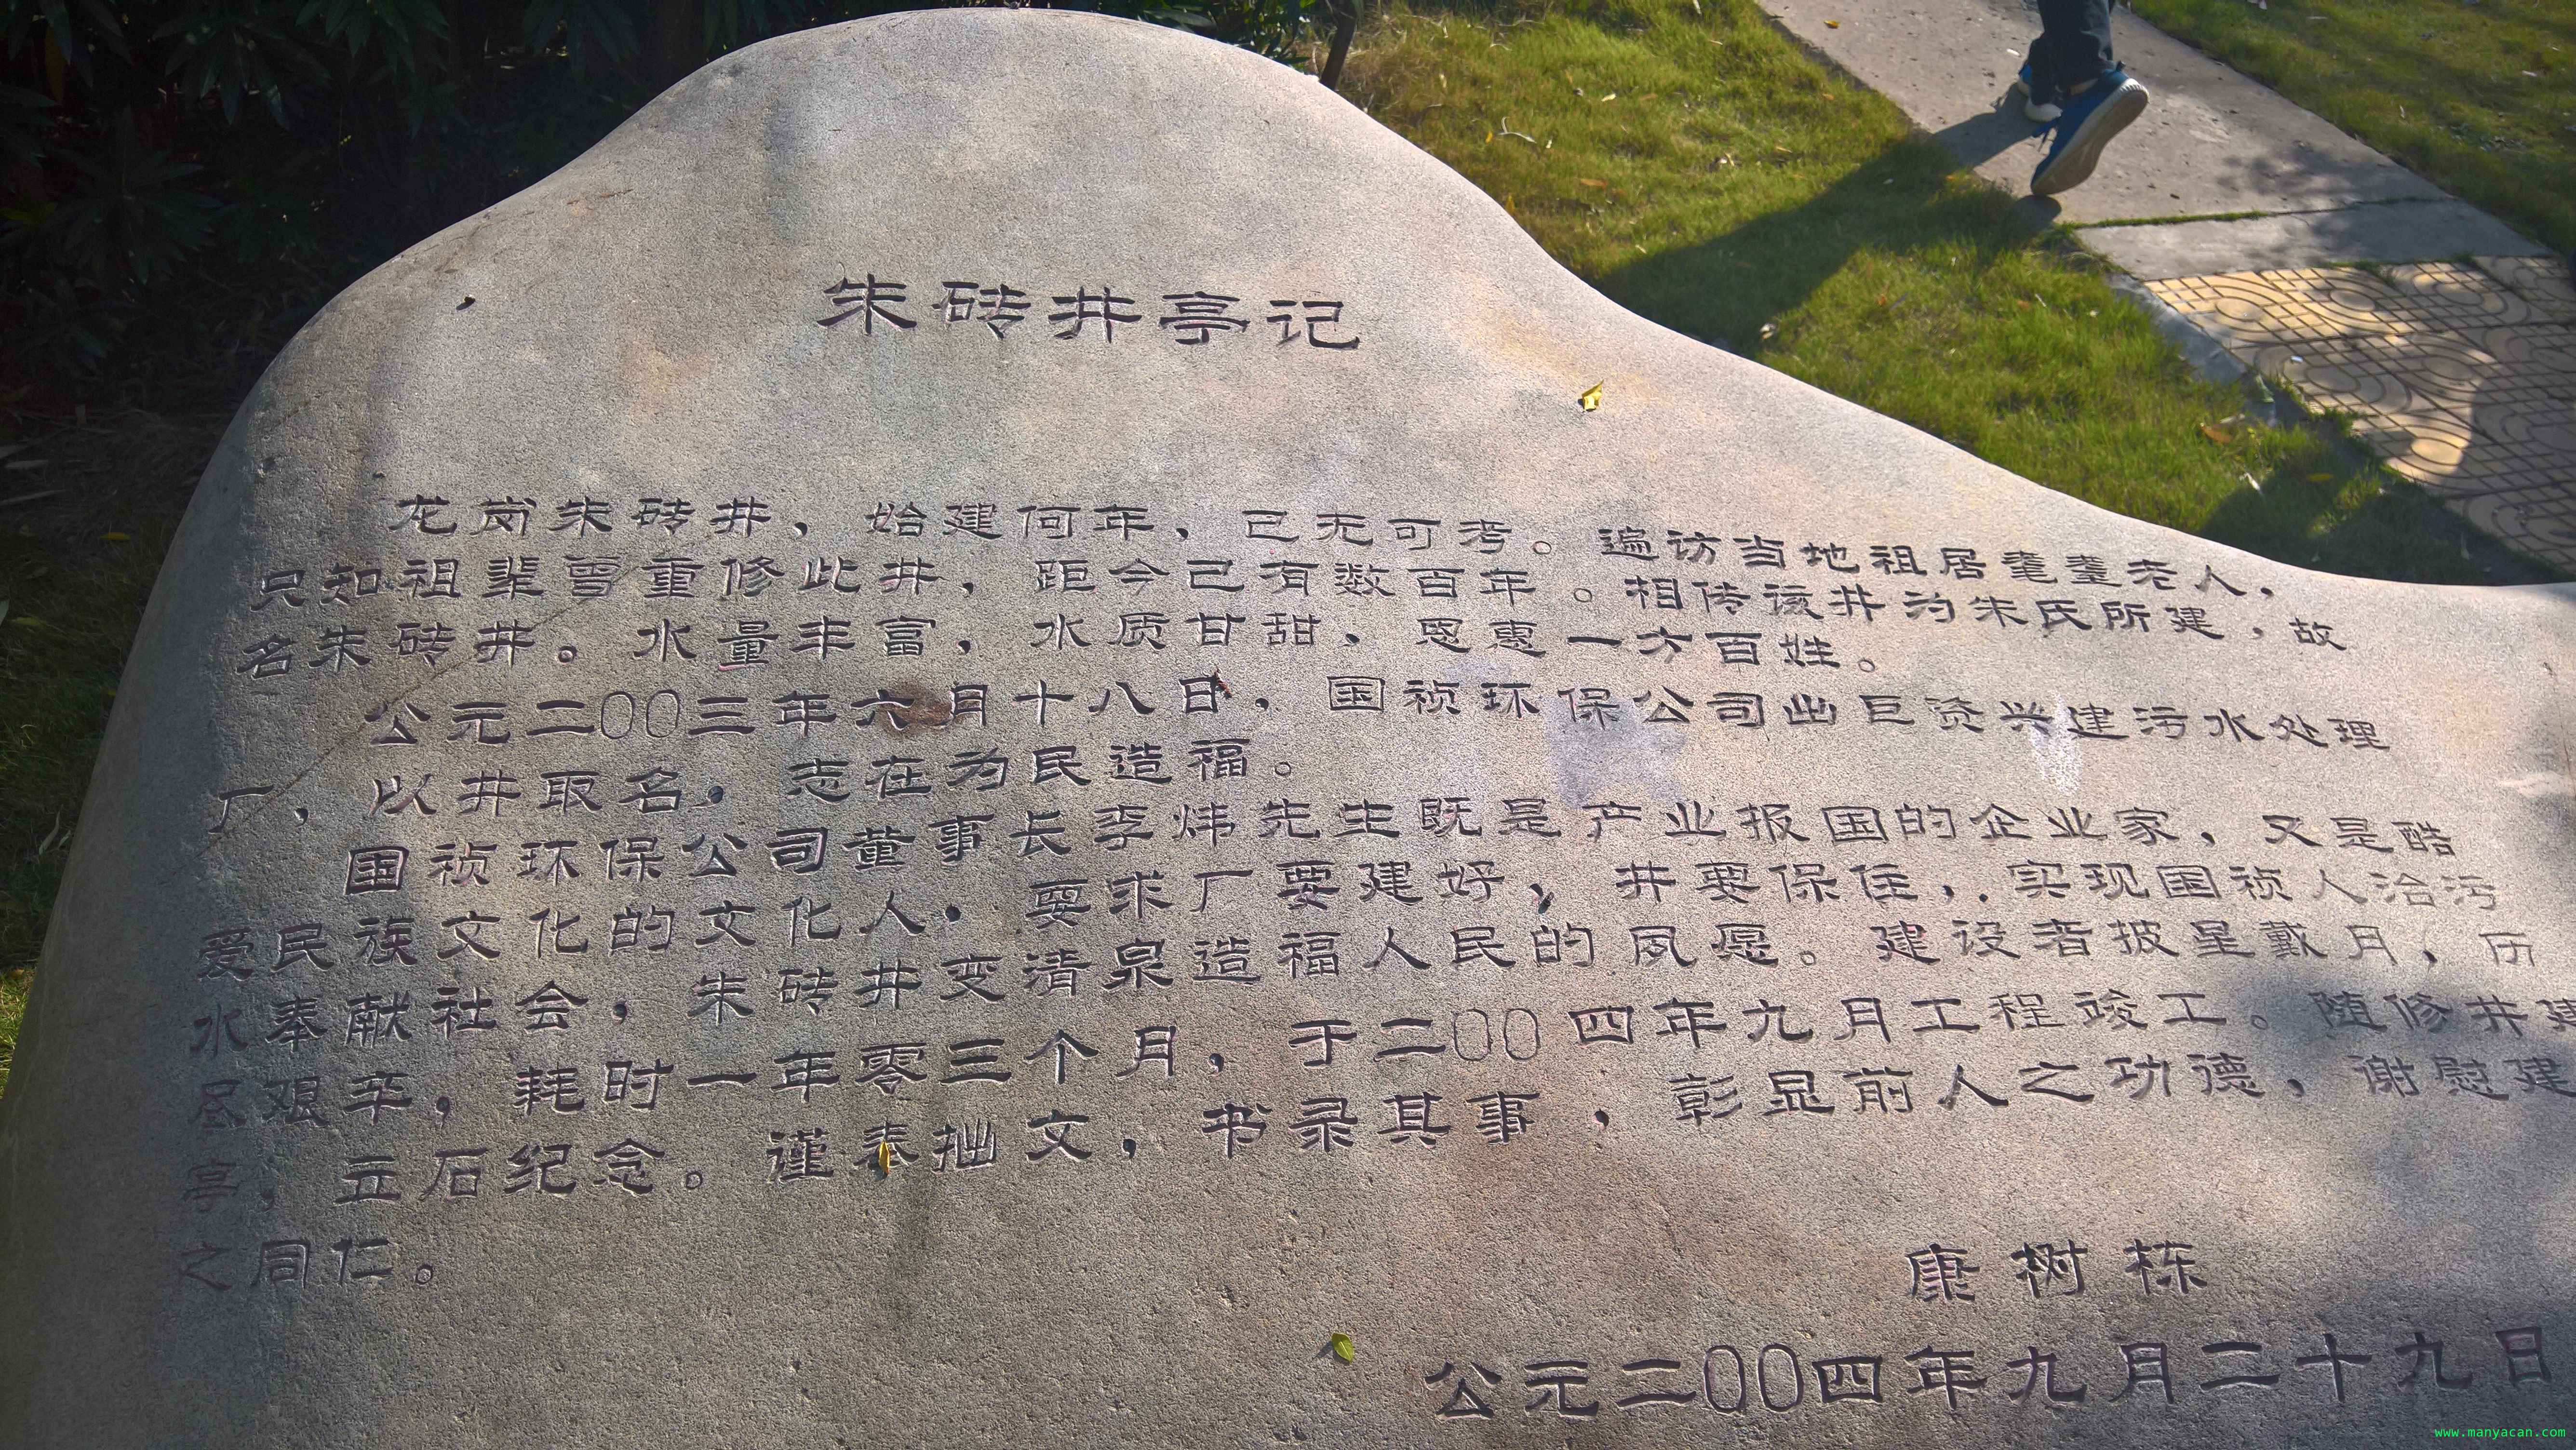 朱砖井亭记
龙岗朱砖井，始建何年，已无可考。遍访当地祖居耄耋老人，
只知祖辈曾重修此井，距今已有数百年。相传该井为朱氏所建，故
名朱砖井。水量丰富，水质甘甜，恩惠一方百姓。
公元二00三年六月十八日，国祯环保公司出巨资兴建污水处理
厂，以井取名，志在为民造福。
国祯环保公司董事长李炜先生既是产业报国的企业家，又是酷
爱民族文化的文化人。要求厂要建好，井要保住，实现国祯人治污
水奉献社会，朱砖井变清泉造福人民的夙愿。建设者披星戴月，历
尽艰辛，耗时一年零三个月，于二00四年九月工程竣工。随修井建
亭，立石纪念。谨奉拙文，书录其事，彰显前人之功德，谢慰建
之同仁。
康树栋
公元二00四年九月二十九日
www.manyacan.com